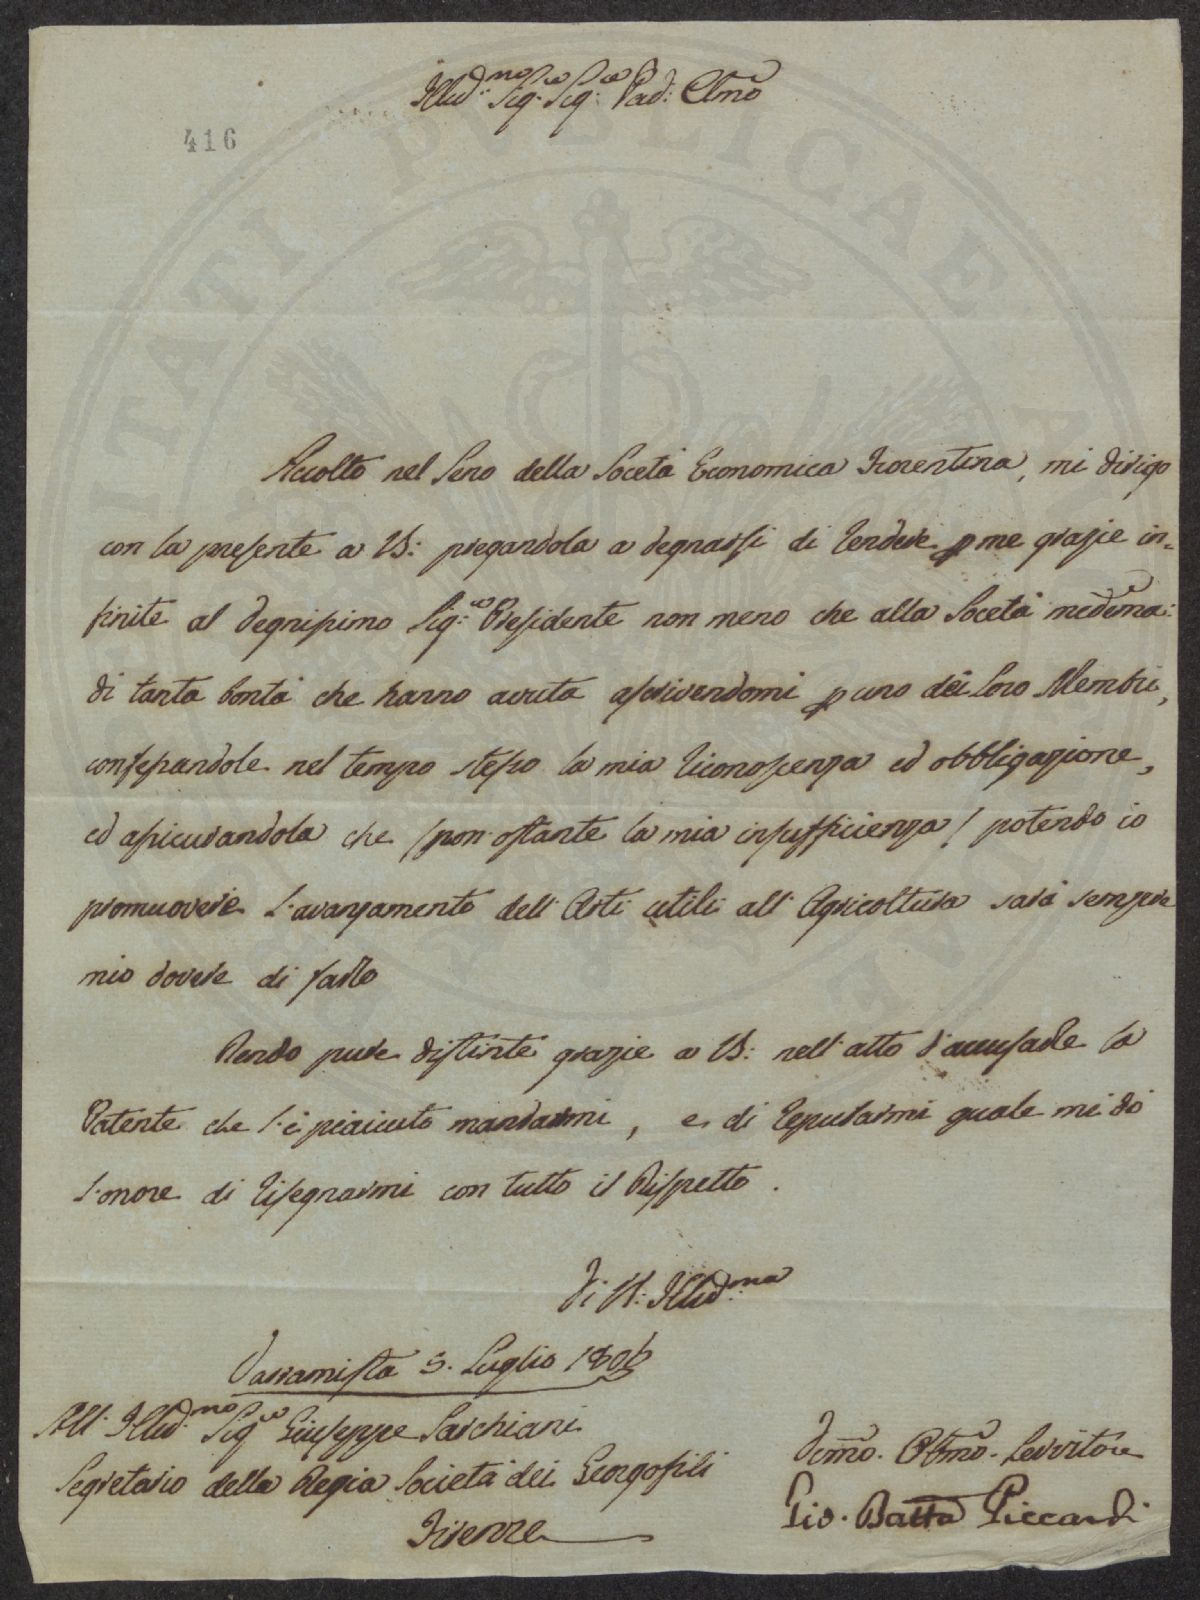 Illus:mo Sig:re Sig:re Pad: Clmo
416
Accolto nel Seno della Socetà Economica Fiorentina, mi dirigo
con la presente a VS: pregandola a degnarsi di rendere p me grazie in=
finite al degnissimo Sig:re Presidente non meno che alla Socetà medema:
di tanta bontà che hanno avuta ascrivendomi p uno dei Loro Membri,
confessandole nel tempo stesso la mia riconoscenza ed obbligazione,
ed assicurandola che /non ostante la mia insufficienza/ potendo io
promuovere l'avanzamento dell'Arti utili all'Agricoltura sarà sempre
mio dovere di farlo
Rendo pure distinte grazie a VS: nell'atto d'accusarle la
Patente che l'è piaciuto mandarmi, e di reputarmi quale mi dò
l'onore di risegnarmi con tutto il Rispetto.
Di VS: Illus:ma
Varramista 5. Luglio 1806
All' Illus:mo Sig:re Giuseppe Sarchiani
Segretario della Regia Società dei Georgofili
Firenze
Devmo. Obmo. Servitore
Gio. Batta Piccardi
UTILITATI PUBLICAE